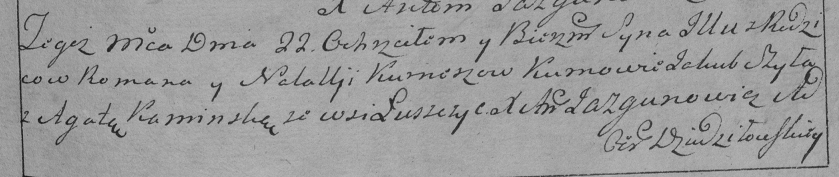 X Antem Jazgun
Tegoż mca Dnia 22. Ochrzciłem y Bierzm Syna Illu z Rodzi
cow Romana y Natalji Kumeszow Kumowie Jakub Szyła
z Agatą Kaminską ze wsi Łuszczyc X An Jazgunowicz Ad
Dziedziłowskiey